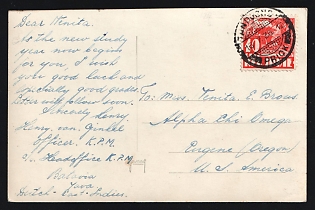 Dear Wenita.
As the new study
year now begins
for you, I wish
you good luck and
specially good grades.
Letter will follow soon.
Sincerely Henry.
Henry. van. Ginkel
Officer. K.P.M.
c/o Headoffice K.P.M.
Batavia
Java
Dutch-East-Indies.
To: Miss. Tenita. E. Brous
Alpha Chi Omega
Eugene (Oregon)
U. S. America
10